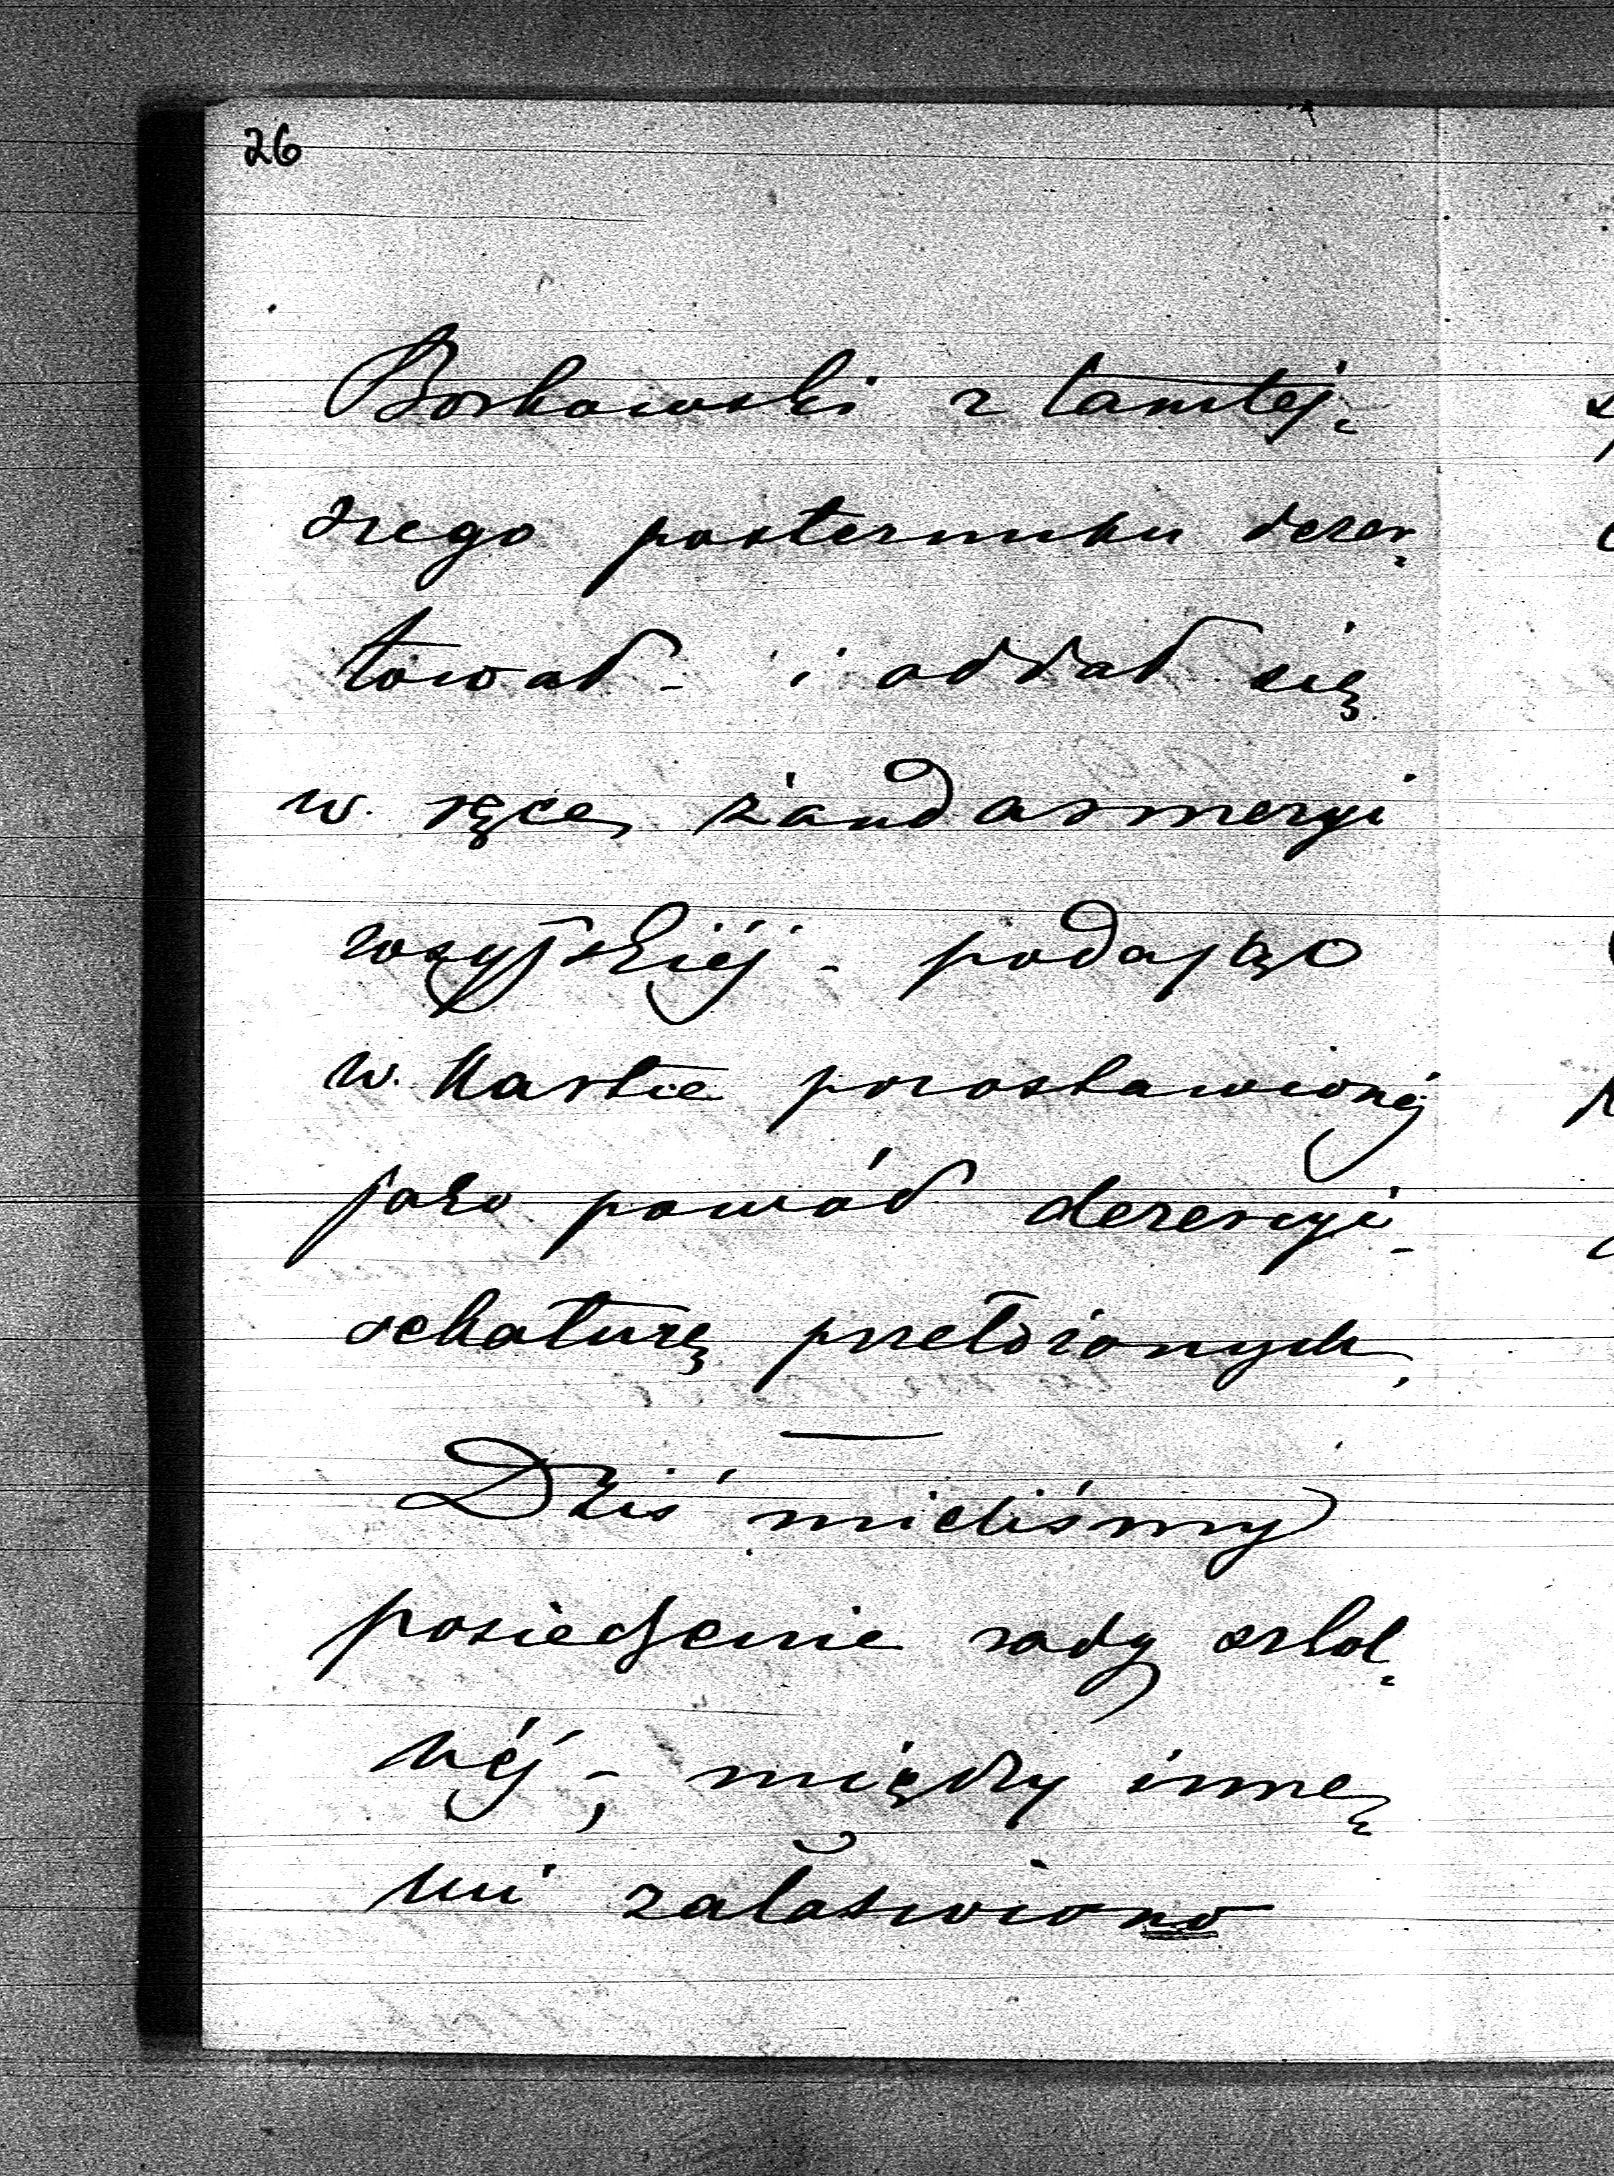 26
Borkowski z tamtej-
szego posterunku dezer-
tował - i oddał się
w ręce żandarmeryi
rosyjskiéj - podając
w kartce pozostawionéj
jako powód dezercyi -
sekaturę przełożonych,
Dziś mieliśmy
posiedzenie rady szkol-
néj -, między inne-
mi załatwiono